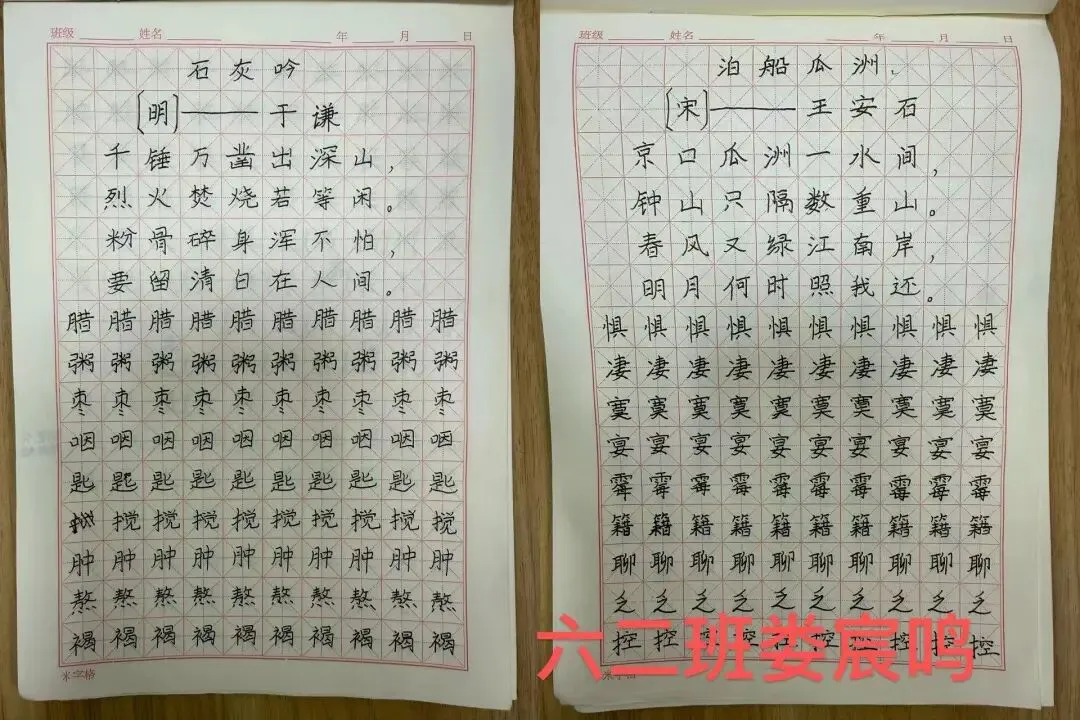 班级 姓名 年 月 日
石灰吟
[明]——于谦
千锤万凿出深山，
烈火焚烧若等闲。
粉骨碎身浑不怕，
要留清白在人间。
腊腊腊腊腊腊腊腊腊腊
粥粥粥粥粥粥粥粥粥粥
枣枣枣枣枣枣枣枣枣枣
咽咽咽咽咽咽咽咽咽咽
匙匙匙匙匙匙匙匙匙匙
搅搅搅搅搅搅搅搅搅搅
肿肿肿肿肿肿肿肿肿肿
熬熬熬熬熬熬熬熬熬熬
褐褐褐褐褐褐褐褐褐褐
米字格
班级 姓名 年 月 日
泊船瓜洲.
[宋]——王安石
京口瓜洲一水间，
钟山只隔数重山。
春风又绿江南岸，
明月何时照我还。
惧惧惧惧惧惧惧惧惧惧
凄凄凄凄凄凄凄凄凄凄
寞寞寞寞寞寞寞寞寞寞
宴宴宴宴宴宴宴宴宴宴
霉霉霉霉霉霉霉霉霉霉
籍籍籍籍籍籍籍籍籍籍
聊聊聊聊聊聊聊聊聊聊
乏乏乏乏乏乏乏乏乏乏
控控控控控控控控控控
米字格
六二班娄宸鸣